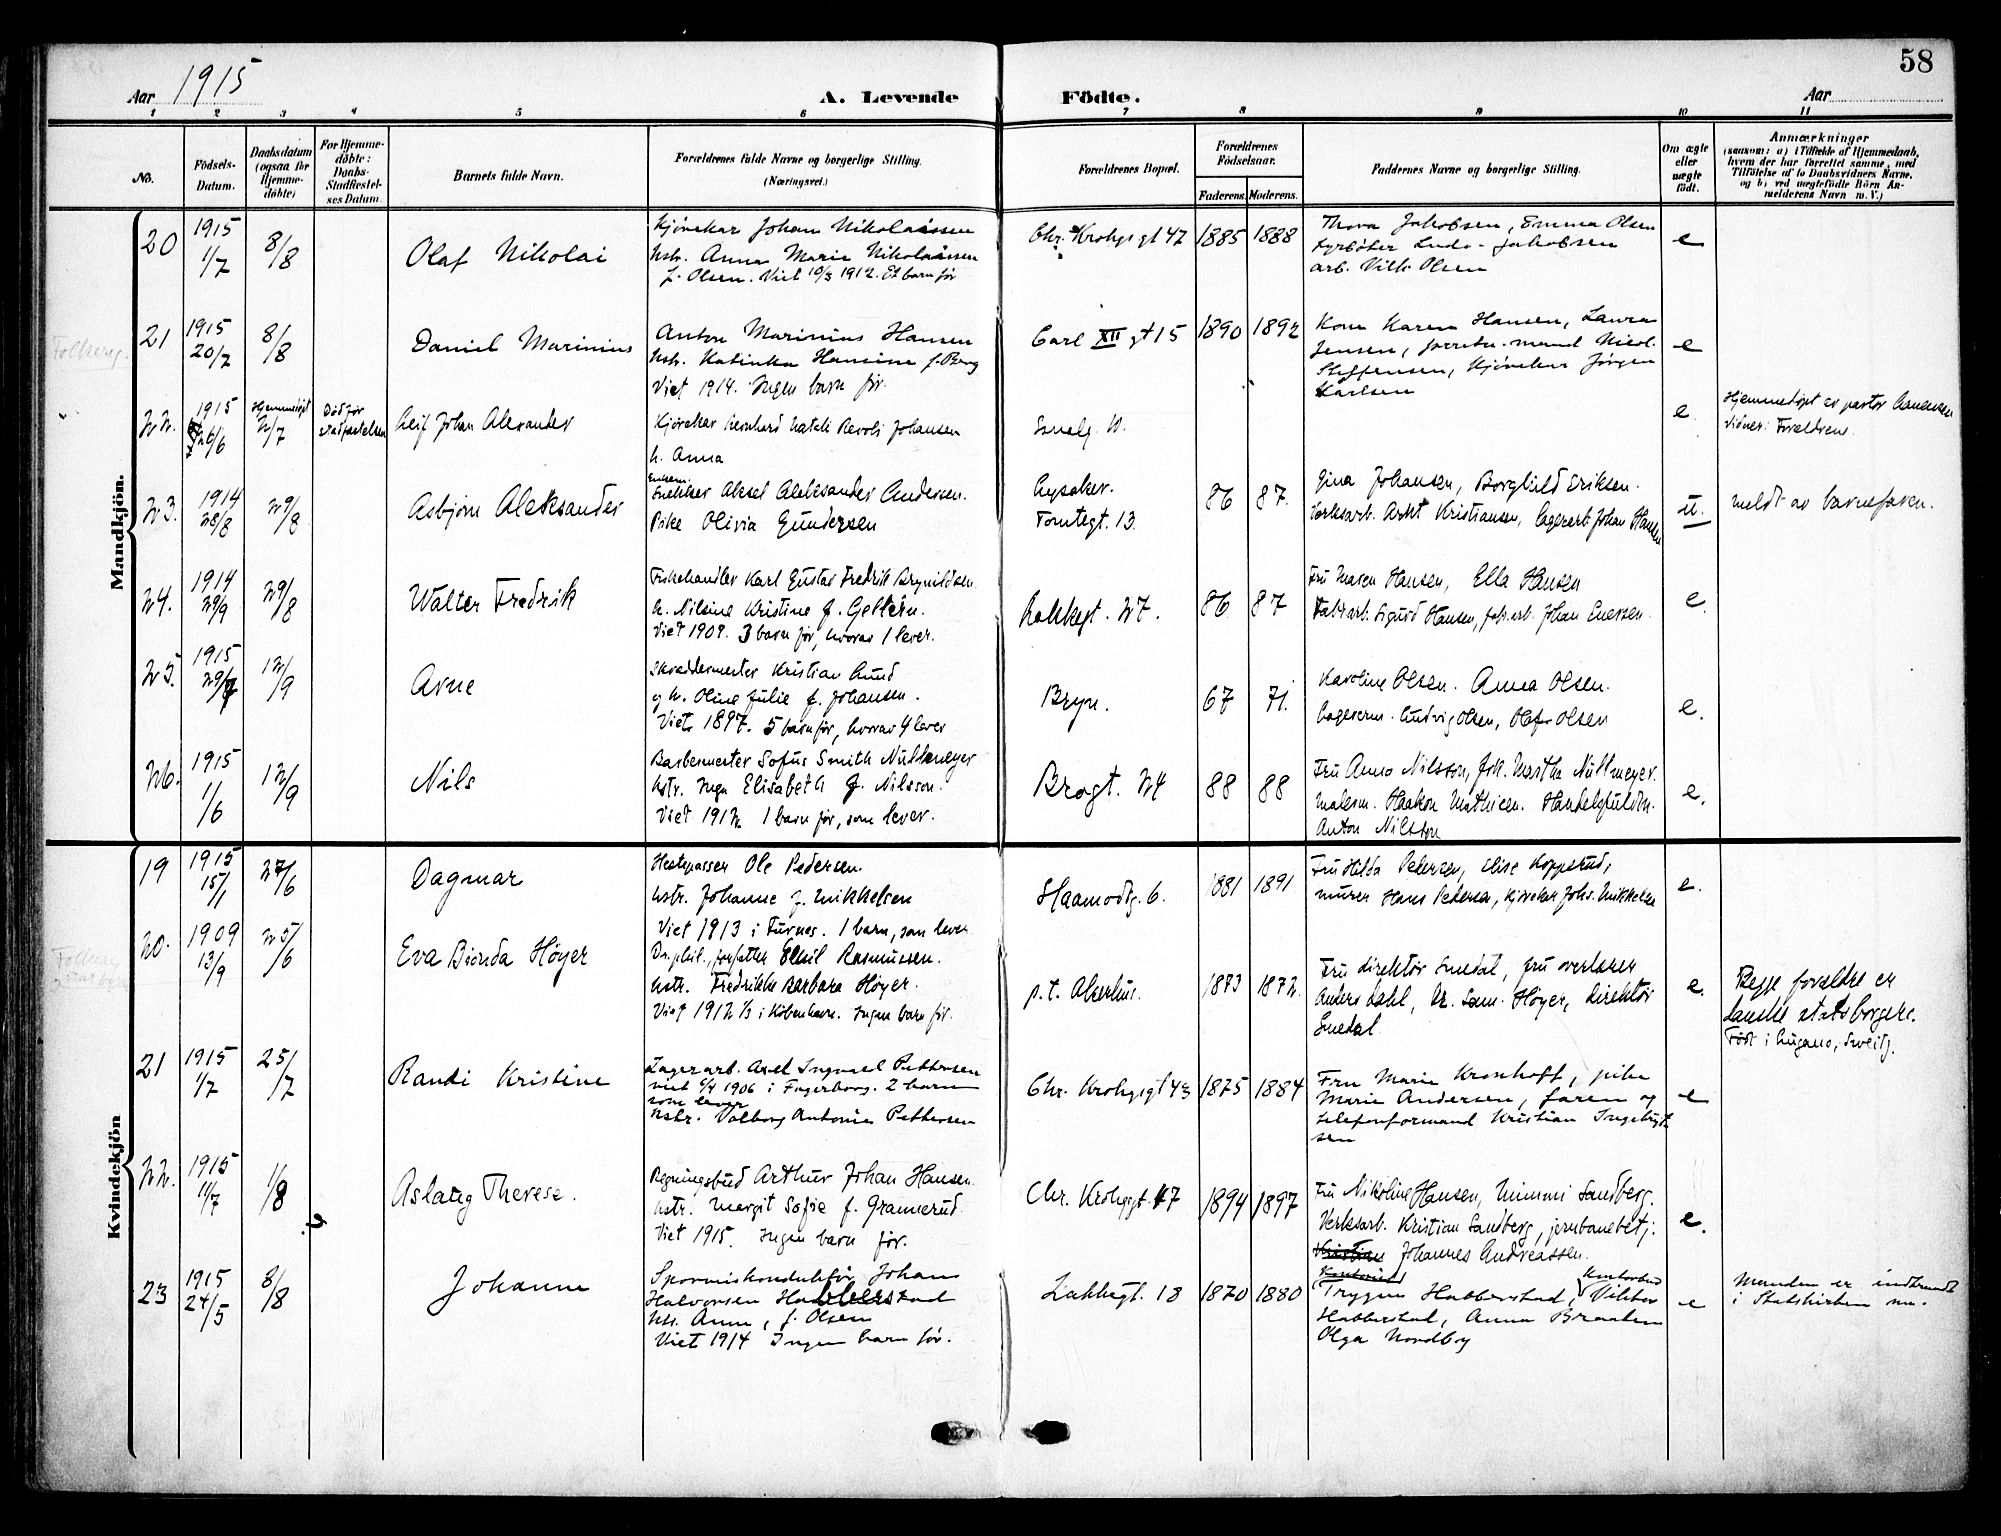 58
Aar 1915
A. Levende Födte.
Aar
1 2 3 4 5 6 7 8 9 10 11
No.
Födsels-Datum.
Daabsdatum (ogsaa for Hjemme-döbte)
For Hjemme-döbte: Daabs-Stadfæstel-ses Datum.
Barnets fulde Navn.
Forældrenes fulde Navne og borgerlige Stilling.
(Næringsvei.)
Forældrenes Bopæl.
Forældrenes Födselsaar.
Faderens. Moderens.
Faddernes Navne og borgerlige Stilling.
Om ægte eller uægte födt.
Anmærkninger
(saasom: a) i Tilfælde af Hjemmedaab, hvem der har forrettet samme, med Tilföielse af to Daabsvidners Navne, og b) ved uægtefödte Börn An-melderens Navn m. V.)
Mandkjön.
20 1915 1/7 8/8 Olaf Nikolai
Kjörekar Johan Nikolaissen
hstr. Anna Marie Nikolaissen
f. Olsen. Viet 10/3 1912. Et barn för
Chr. Krohgs gt 47 1885 1888
Thora Jakobsen, Emma Olsen
fyrböter Ludv. Jakobsen
arb. Vilh. Olsen
e
21 1915 20/7 8/8 Daniel Marinius
Anton Marinius Hansen
hstr. Katinka Hansine f. Berg
Viet 1914. Ingen barn för.
Carl XII gt 15 1890 1892
Kone Karen Hansen, Laura
Jensen, forretn.mand Nicol.
Steffensen, Kjörekar Jørgen
Karlsen
e
22. 1915 26/6 Hjemmedöpt 2/7 Död för stadfæstelsen Leif Johan Alexander
Kjörekar Leonhard Natali Revoli Johansen
h. Anna
Smalg. 11.
e.
Hjemmedöpt av pastor
Vidner: Forældrene.
23. 1914 28/8 29/8 Asbjørn Aleksander
Enkem.
Snekker Aksel Aleksander Andersen.
Pike Olivia Gundersen
Lysaker.
Tomtegt. 13. 86 87.
Gina Johansen, Borghild Eriksen.
Verksarb. Arnt Kristiansen, Lagerarb. Johan Hansen
u.
meldt av barnefaren.
24. 1914 29/9 29/8 Walter Fredrik
Fiskehandler Karl Gustav Fredrik Brynildsen.
h. Nilsine Kristine f.
Viet 1909. 3 barn för, hvorav 1 lever.
Lakkegt. 27. 86. 87
Fru Maren Hansen, Ella Hansen
Fabrarb. Sigurd Hansen, fabr.arb. Johan Enersen.
e.
25. 1915 12/9 Arne
Skreddermester Kristian Lund
og h. Oline Julie f. Johansen.
Viet 1897. 5 barn för, hvorav 4 lever
Bryn. 67 71.
Karoline Olsen. Anna Olsen.
Lagerarb. Ludvig Olsen, Olaf Olsen
e.
26. 1915 1/6 12/9 Nils
Barbermester Sofus Smith Nüllmeyer
hstr. Inga Elisabeth f. Nilsson.
Viet 1912 1 barn för, som lever.
Brogt. 24 88 88
Fru Anna Nilsson, frk. Martha Nüllmeyer.
Malerm. Haakon Mathisen. Handelsfuldm.
Anton Nilsson
e.
Kvindekjön
19 1915 15/1 27/6 Dagmar
Hestepasser Ole Pedersen.
hstr. Johanne f. Mikkelsen
Viet 1913 i Furnes. 1 barn, som lever
Haamodsg. 6. 1881 1891
Fru Hilda Petersen, Elise Kopperud,
murer Hans Pedersen, kjörekar Johs. Mikkelsen
e.
20. 1909 13/9 25/6 Eva Bionda Höyer
Dr. phil., forfatter Emil Rasmussen.
hstr. Fredrikke Barbara Höyer.
Viet 1912 1/3 i Köbenhavn. Ingen barn för.
p.t. Akerhus. 1873 1872.
Fru direktör Smedal, fru overlærer
Anders Dahl, Dr. Sam. Höyer, direktör
Smedal
e.
Begge forældre er
danske statsborgere.
Födt i Lugano, Sveitz.
21 1915 1/7 25/7 Randi Kristine
Lagerarb. Axel Ingvald Pettersen
viet 6/4 1906 i Fagerborg. 2 barn
som lever
hstr. Valborg Antonie Pettersen
Chr. Krohgsgt 43 1875 1884
Fru Marie Kronhoff, pike
Marie Andersen, faren og
telefonformand Kristian Ingebrigt-
sen
e
22. 1915 11/7 1/8 Aslaug Therese.
Regningsbud Arthur Johan Hansen.
hstr. Margit Sofie f. Grannerud.
Viet 1915. Ingen barn för.
Chr. Krohgsgt. 47 1894 1897
Fru Nikoline Hansen, Mimmi Sandberg.
Verksarb. Kristian Sandberg, jernbanebetj.
Johannes Andreassen.
e.
23 1915 24/5 8/8 Johanne
Sporveiskonduktör Johan
Halvorsen Habberstad
hstr. Anna, f. Olsen
Viet 1914 Ingen barn för.
Lakkegt. 18 1870 1880
Kontorist
Trygve Habberstad, Kontorbud Viktor
Habberstad, Anna Braaten
Olga Nordby
e
Manden er indmeldt
i Statskirken nu.